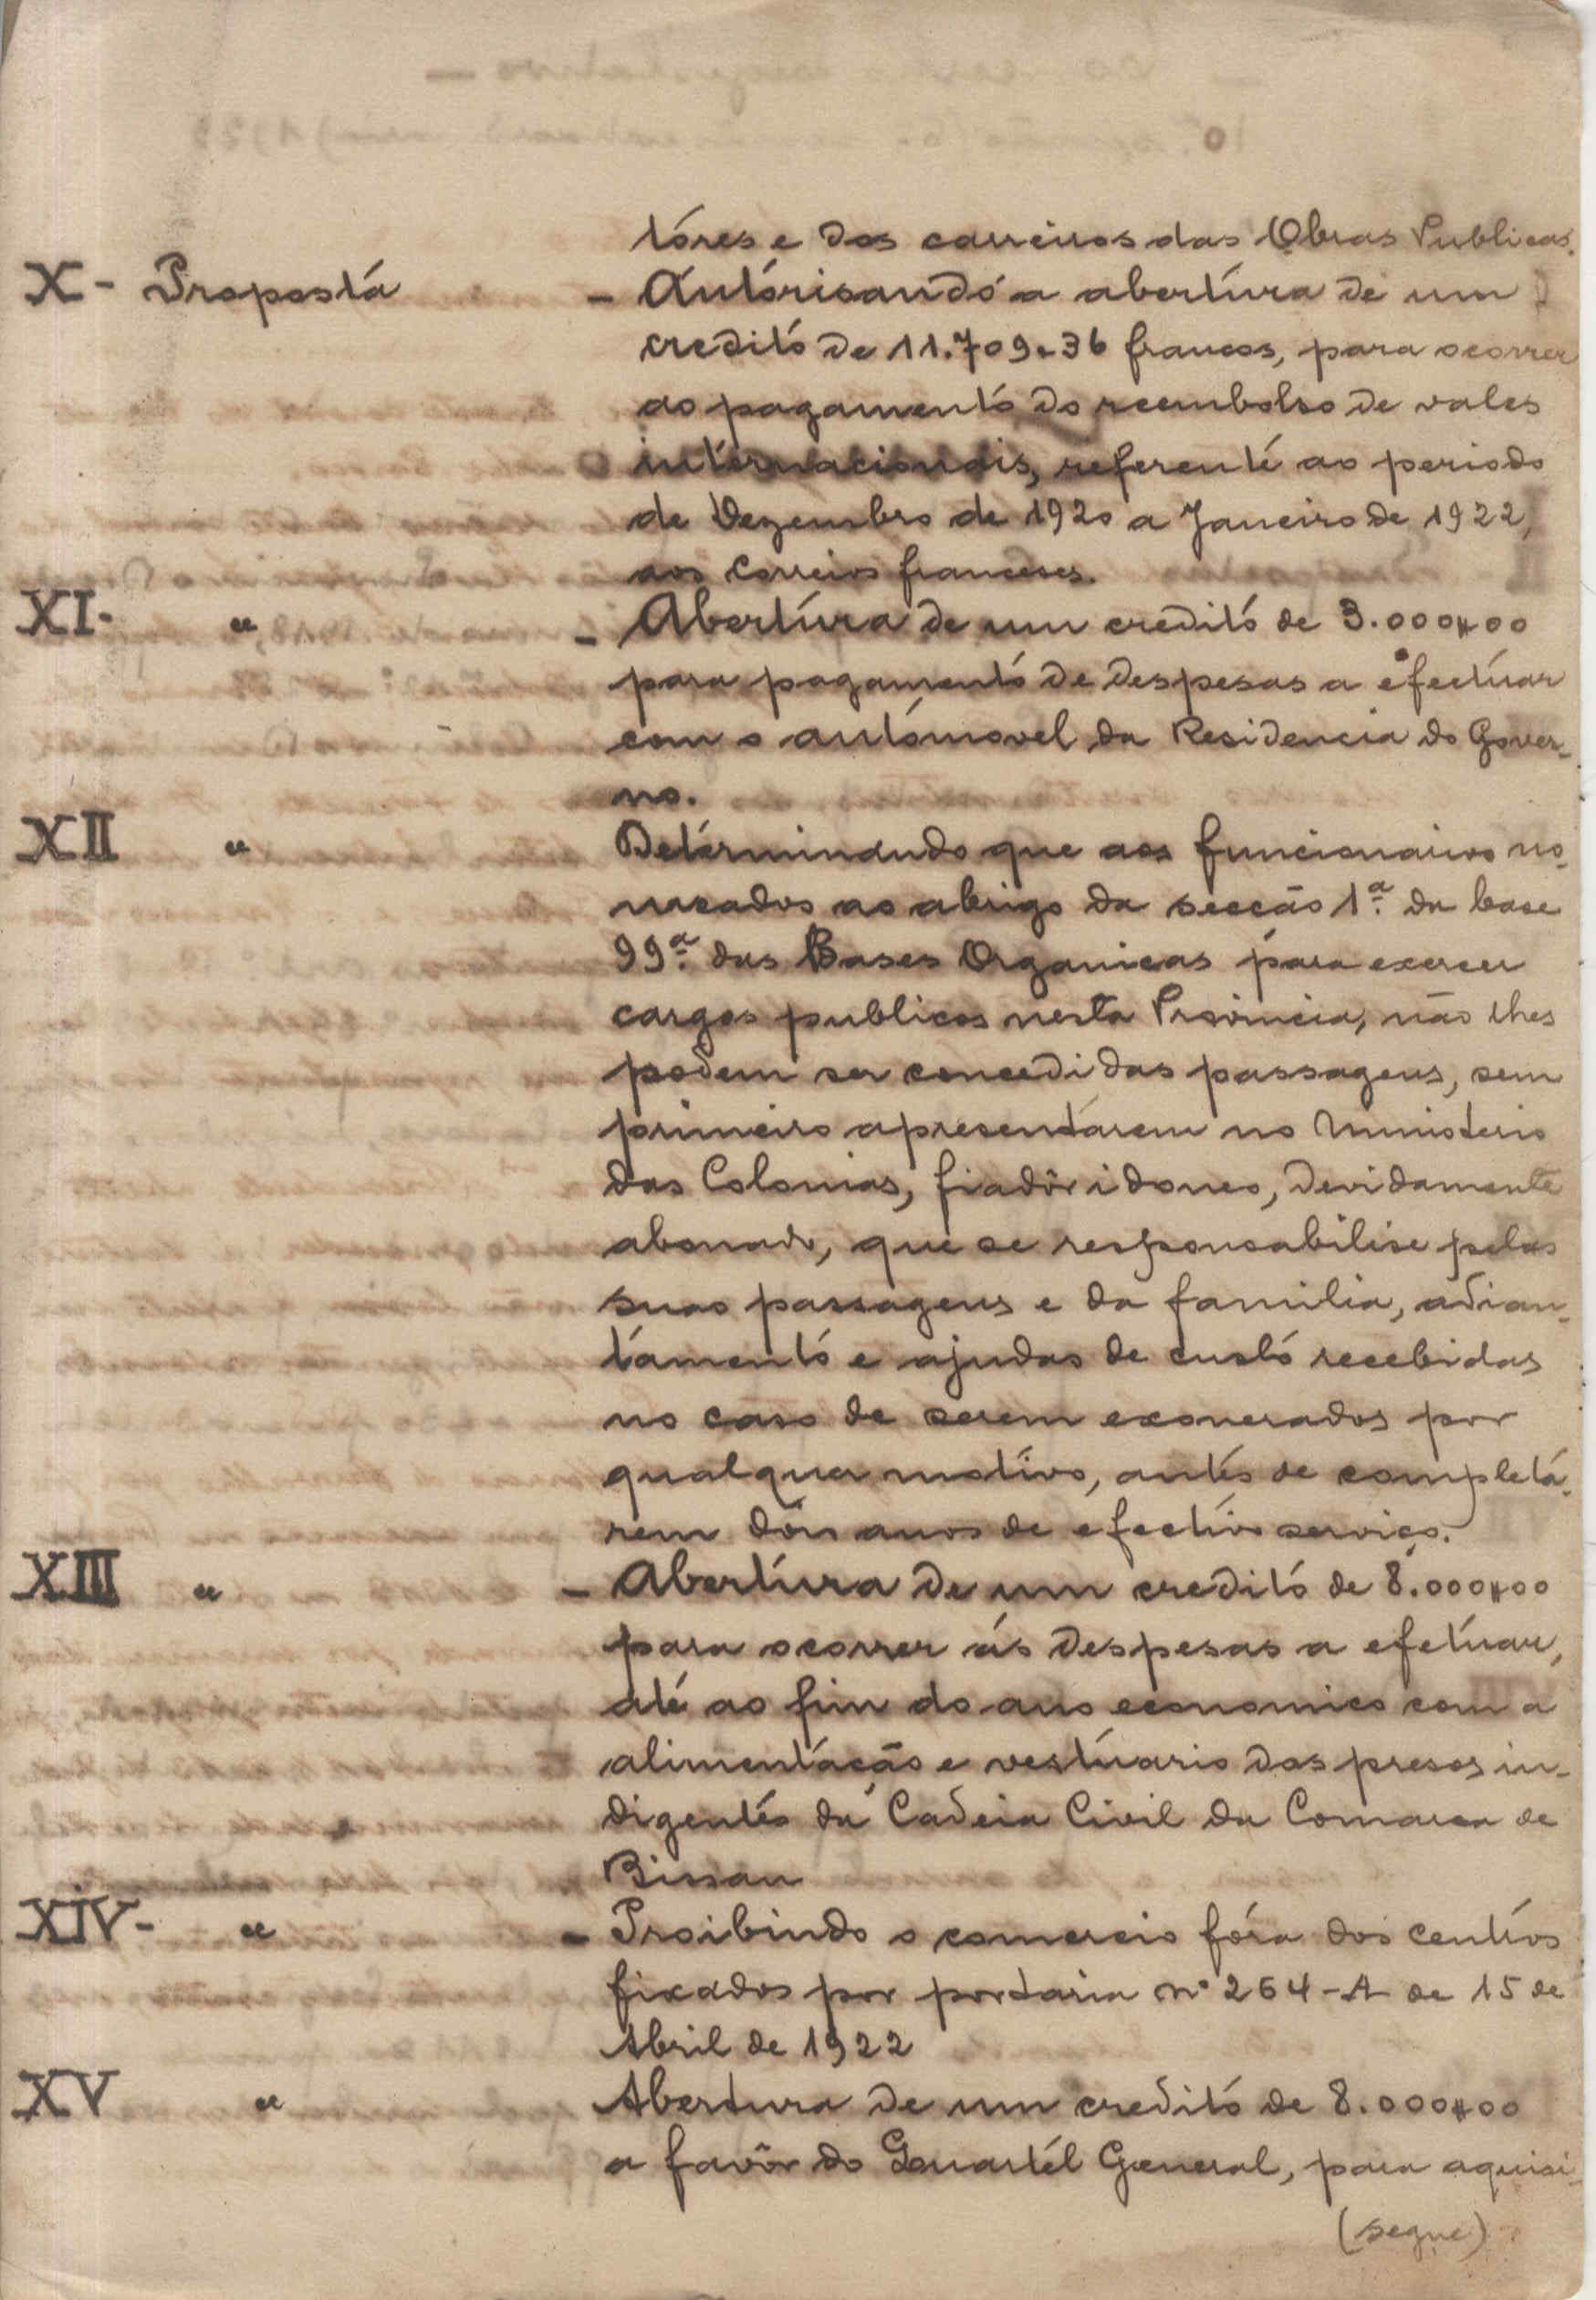 tóres e dos carreiros das Obras Publicas.
X - Proposta - Autorisando a abertura de um
credito de 11.709,36 francos, para ocorrer
ao pagamento do reembolso de vales
internacionais, referente ao periodo
de Dezembro de 1920 a Janeiro de 1922,
aos Correios franceses.
XI - " - Abertura de um credito de 3.000$00
para pagamento de despesas a efectuar
com o automovel da Residencia do Gover-
no.
XII " Determinando que aos funcionarios no-
meados ao abrigo da secção 1.ª da base
99.ª das Bases Organicas para exercer
cargos publicos nesta Provincia, não lhes
podem ser concedidas passagens, sem
primeiro apresentarem no Ministerio
das Colonias, fiadôr idoneo, devidamente
abonado, que se responsabilise pelas
suas passagens e da familia, adian-
tamento e ajudas de custo recebidas
no caso de serem exonerados por
qualquer motivo, antes de completa-
rem dois anos de efectivo serviço.
XIII " - Abertura de um credito de 8.000$00
para ocorrer ás despesas a efetuar,
até ao fim do ano economico com a
alimentação e vestuario dos presos in-
digentes da Cadeia Civil da Comarca de
Bissau
XIV - " - Proibindo o comercio fóra dos centros
fixados por portaria nº 264-A de 15 de
Abril de 1922
XV " Abertura de um credito de 8.000$00
a favôr do Quartél General, para aquisi-
(segue)